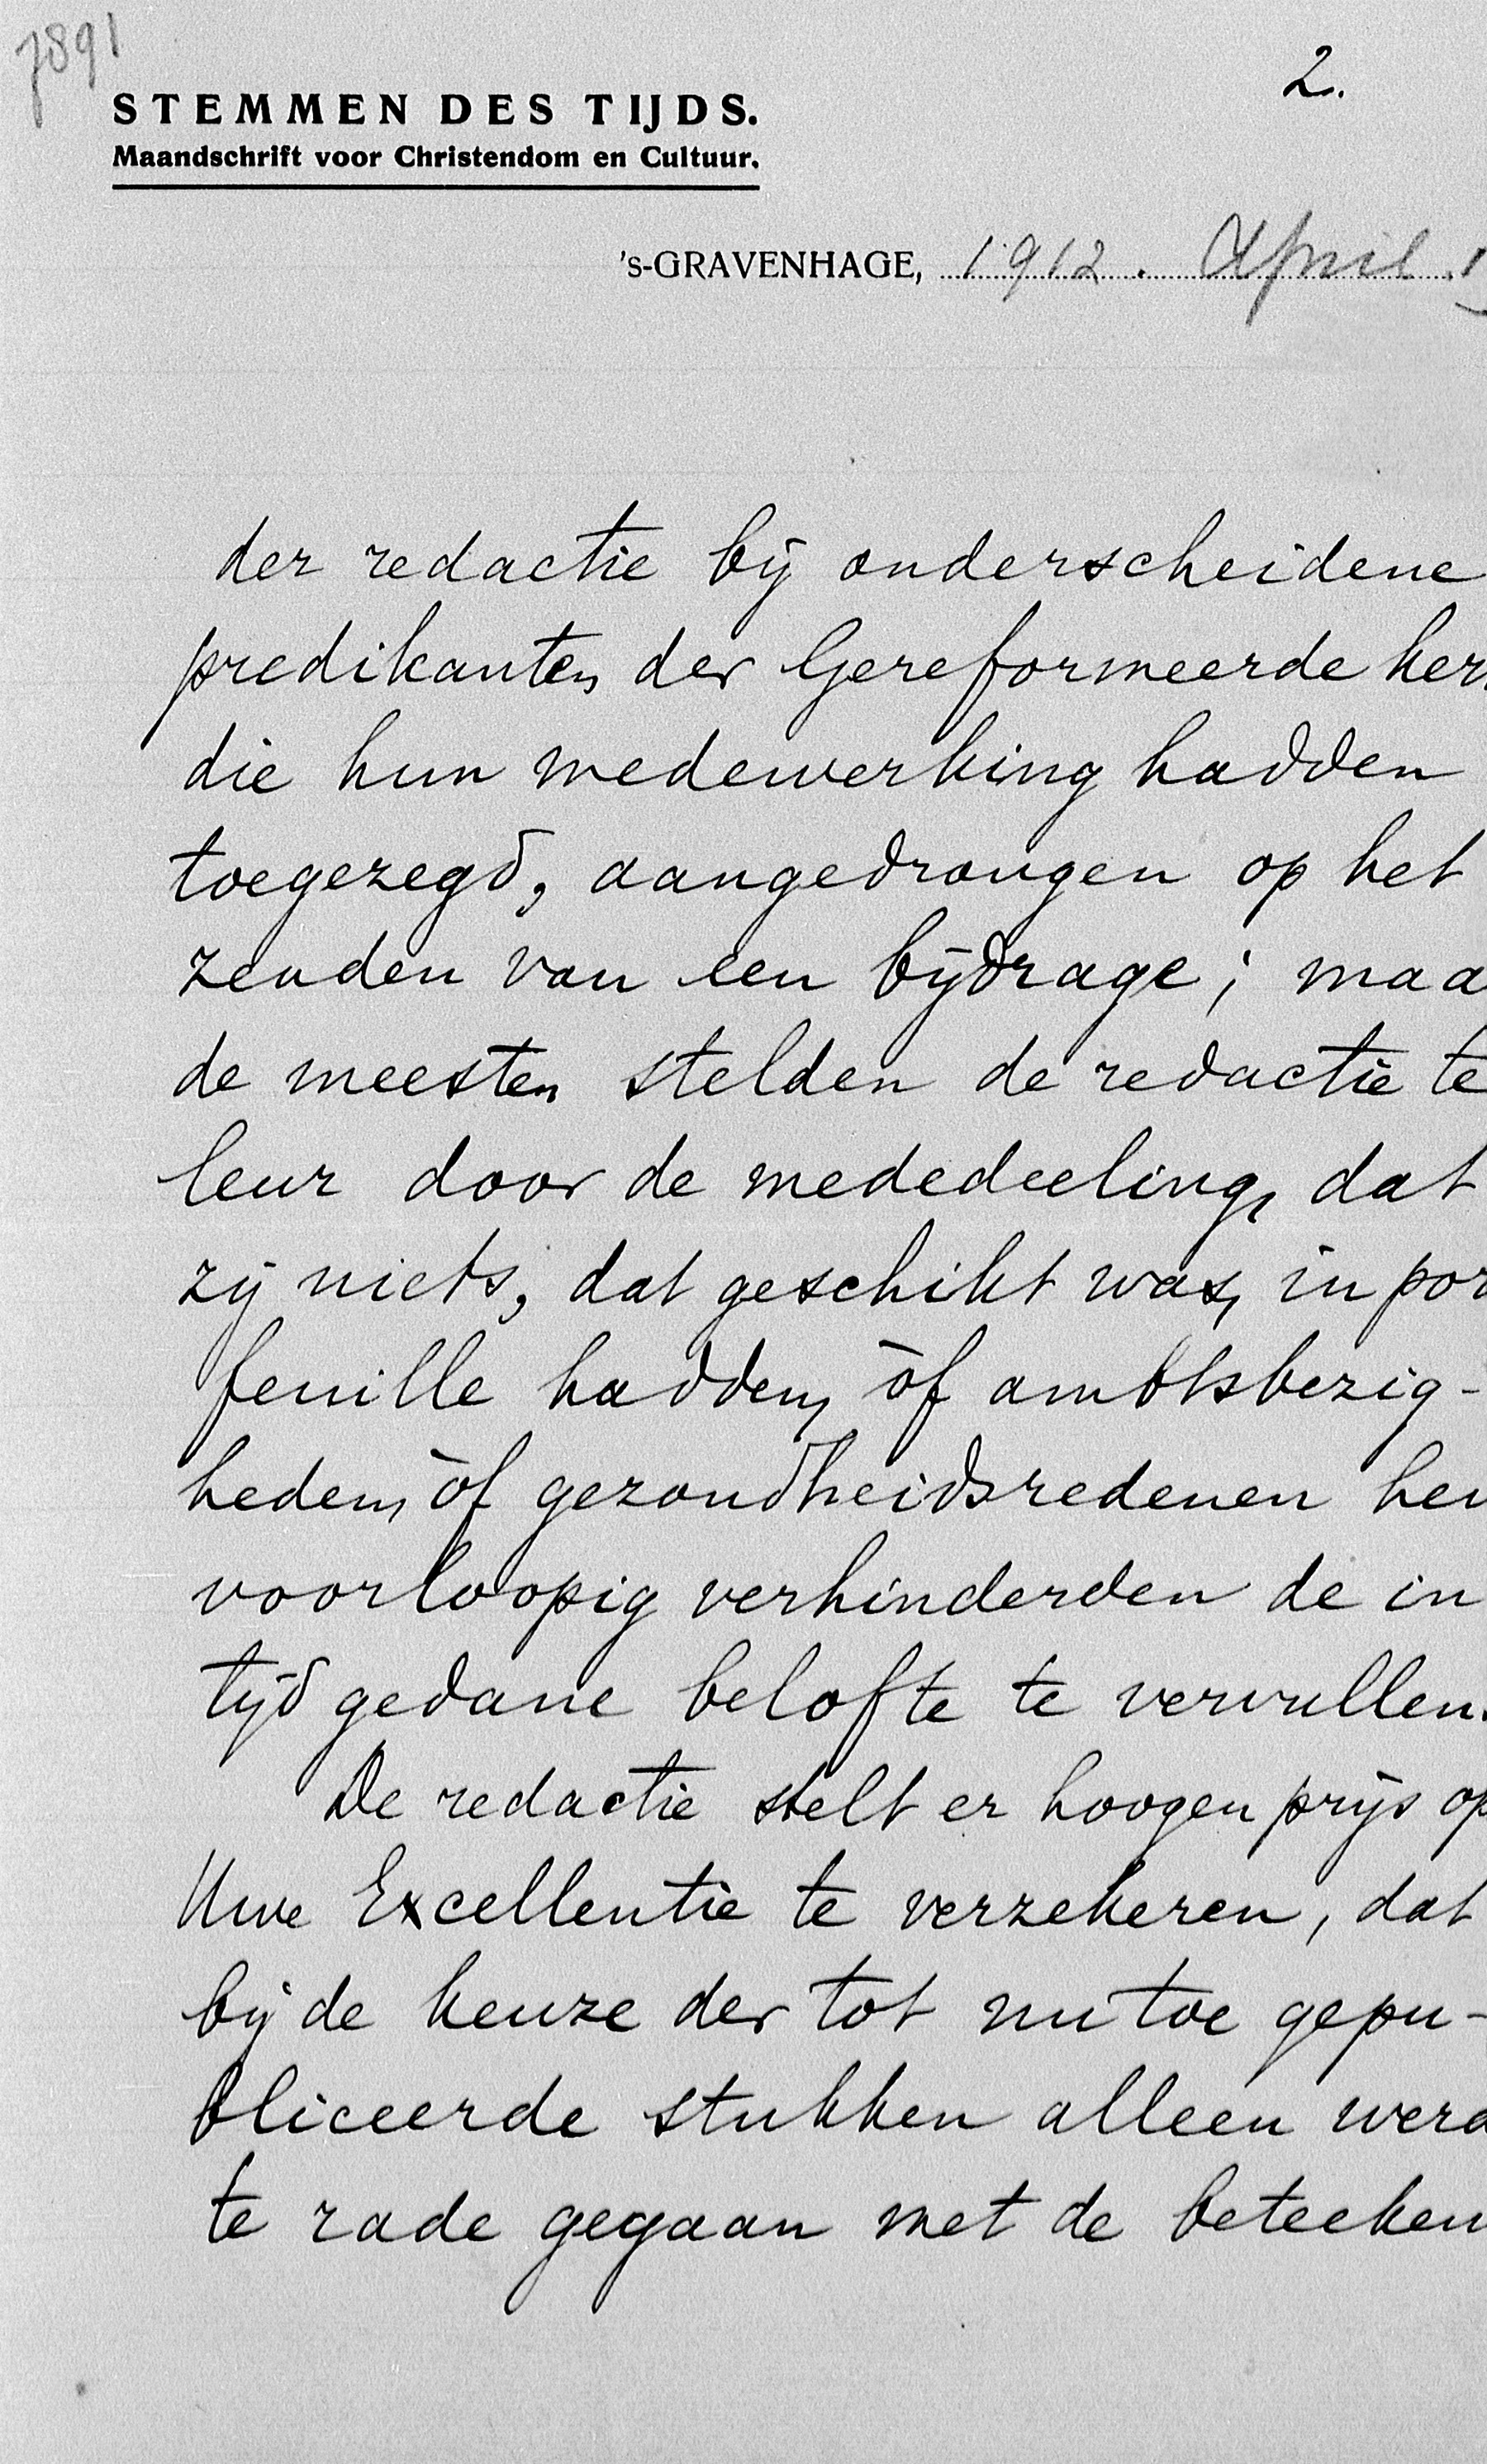 7891
2.
STEMMEN DES TIJDS.
Maandschrift voor Christendom en Cultuur.
's-GRAVENHAGE, 1912. April 1
der redactie bij onderscheidene
predikanten der Gereformeerde ker
die hun medewerking hadden
toegezegd, aangedrongen op het
zenden van een bijdrage; maa
de meesten stelden de redactie te
leur door de mededeeling, dat
zij niets, dat geschikt was, in por
feuille hadden, òf ambtsbezig-
heden, òf gezondheidsredenen hen
voorloopig verhinderden de in
tijd gedane belofte te vervullen.
De redactie stelt er hoogen prijs op
Uwe Excellentie te verzekeren, dat
bij de keuze der tot nu toe gepu-
bliceerde stukken alleen werd
te rade gegaan met de beteeken